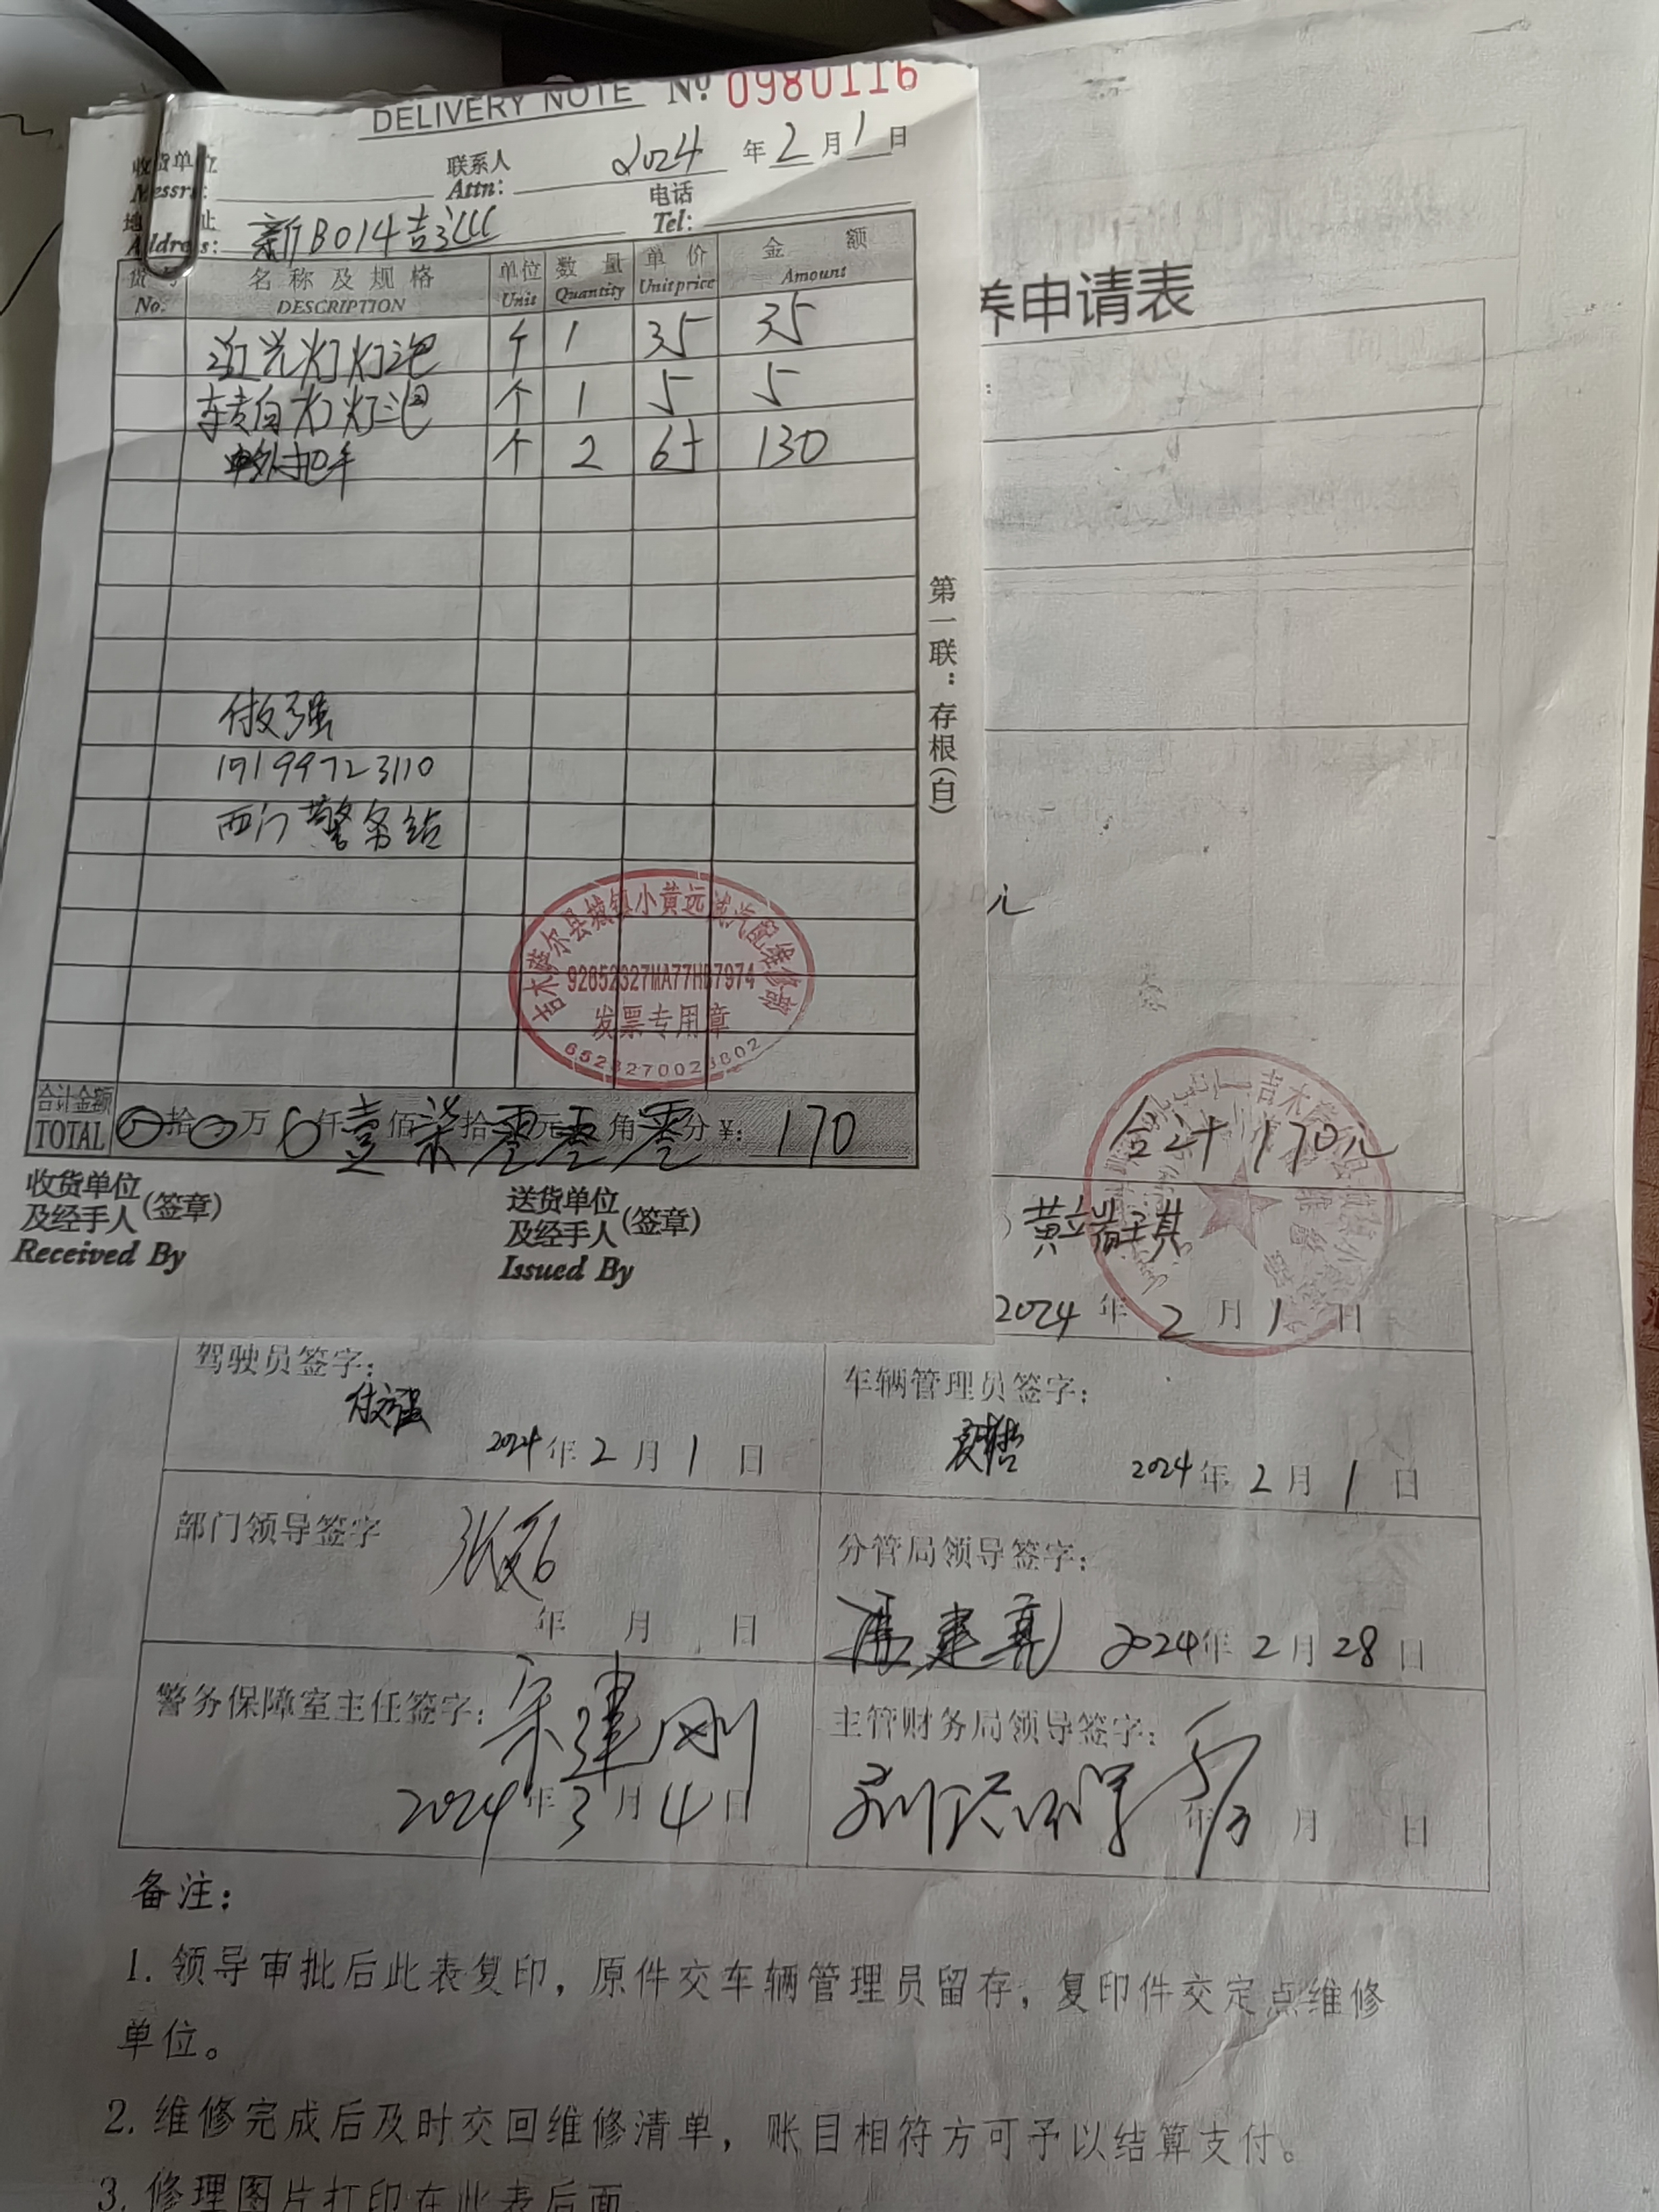 DELIVERY NOTE № 0980116
2024 年 2 月 1 日
收货单位
Messrs:
联系人
Attn:
电话
Tel:
地址
Address: 新B014吉
货号 No. 名称及规格 DESCRIPTION 单位 Unit 数量 Quantity 单价 Unit price 金额 Amount
近光灯灯泡 个 1 35 35
转向灯灯泡 个 1 5 5
外把手 个 2 65 130
付强
西门警务站
吉木萨尔县城镇小黄远诚汽配维修部
92652327MA77HB7974
发票专用章
第一联：存根(白)
合计金额 TOTAL 拾 万 仟 壹 佰 柒 拾 零 元 零 角 零 分 ¥: 170
收货单位
及经手人 (签章)
Received By
送货单位
及经手人 (签章)
Issued By
养申请表
元
合计 170元
2024 年 2 月 1 日
驾驶员签字：
付强
2024 年 2 月 1 日
车辆管理员签字：
2024 年 2 月 1 日
部门领导签字
年 月 日
分管局领导签字：
冯建亮 2024年 2 月 28 日
警务保障室主任签字：
宋建刚
2024 年 3 月 4 日
主管财务局领导签字：
年 月 日
备注：
1. 领导审批后此表复印，原件交车辆管理员留存，复印件交定点维修
单位。
2. 维修完成后及时交回维修清单，账目相符方可予以结算支付。
3. 修理图片打印在此表后面